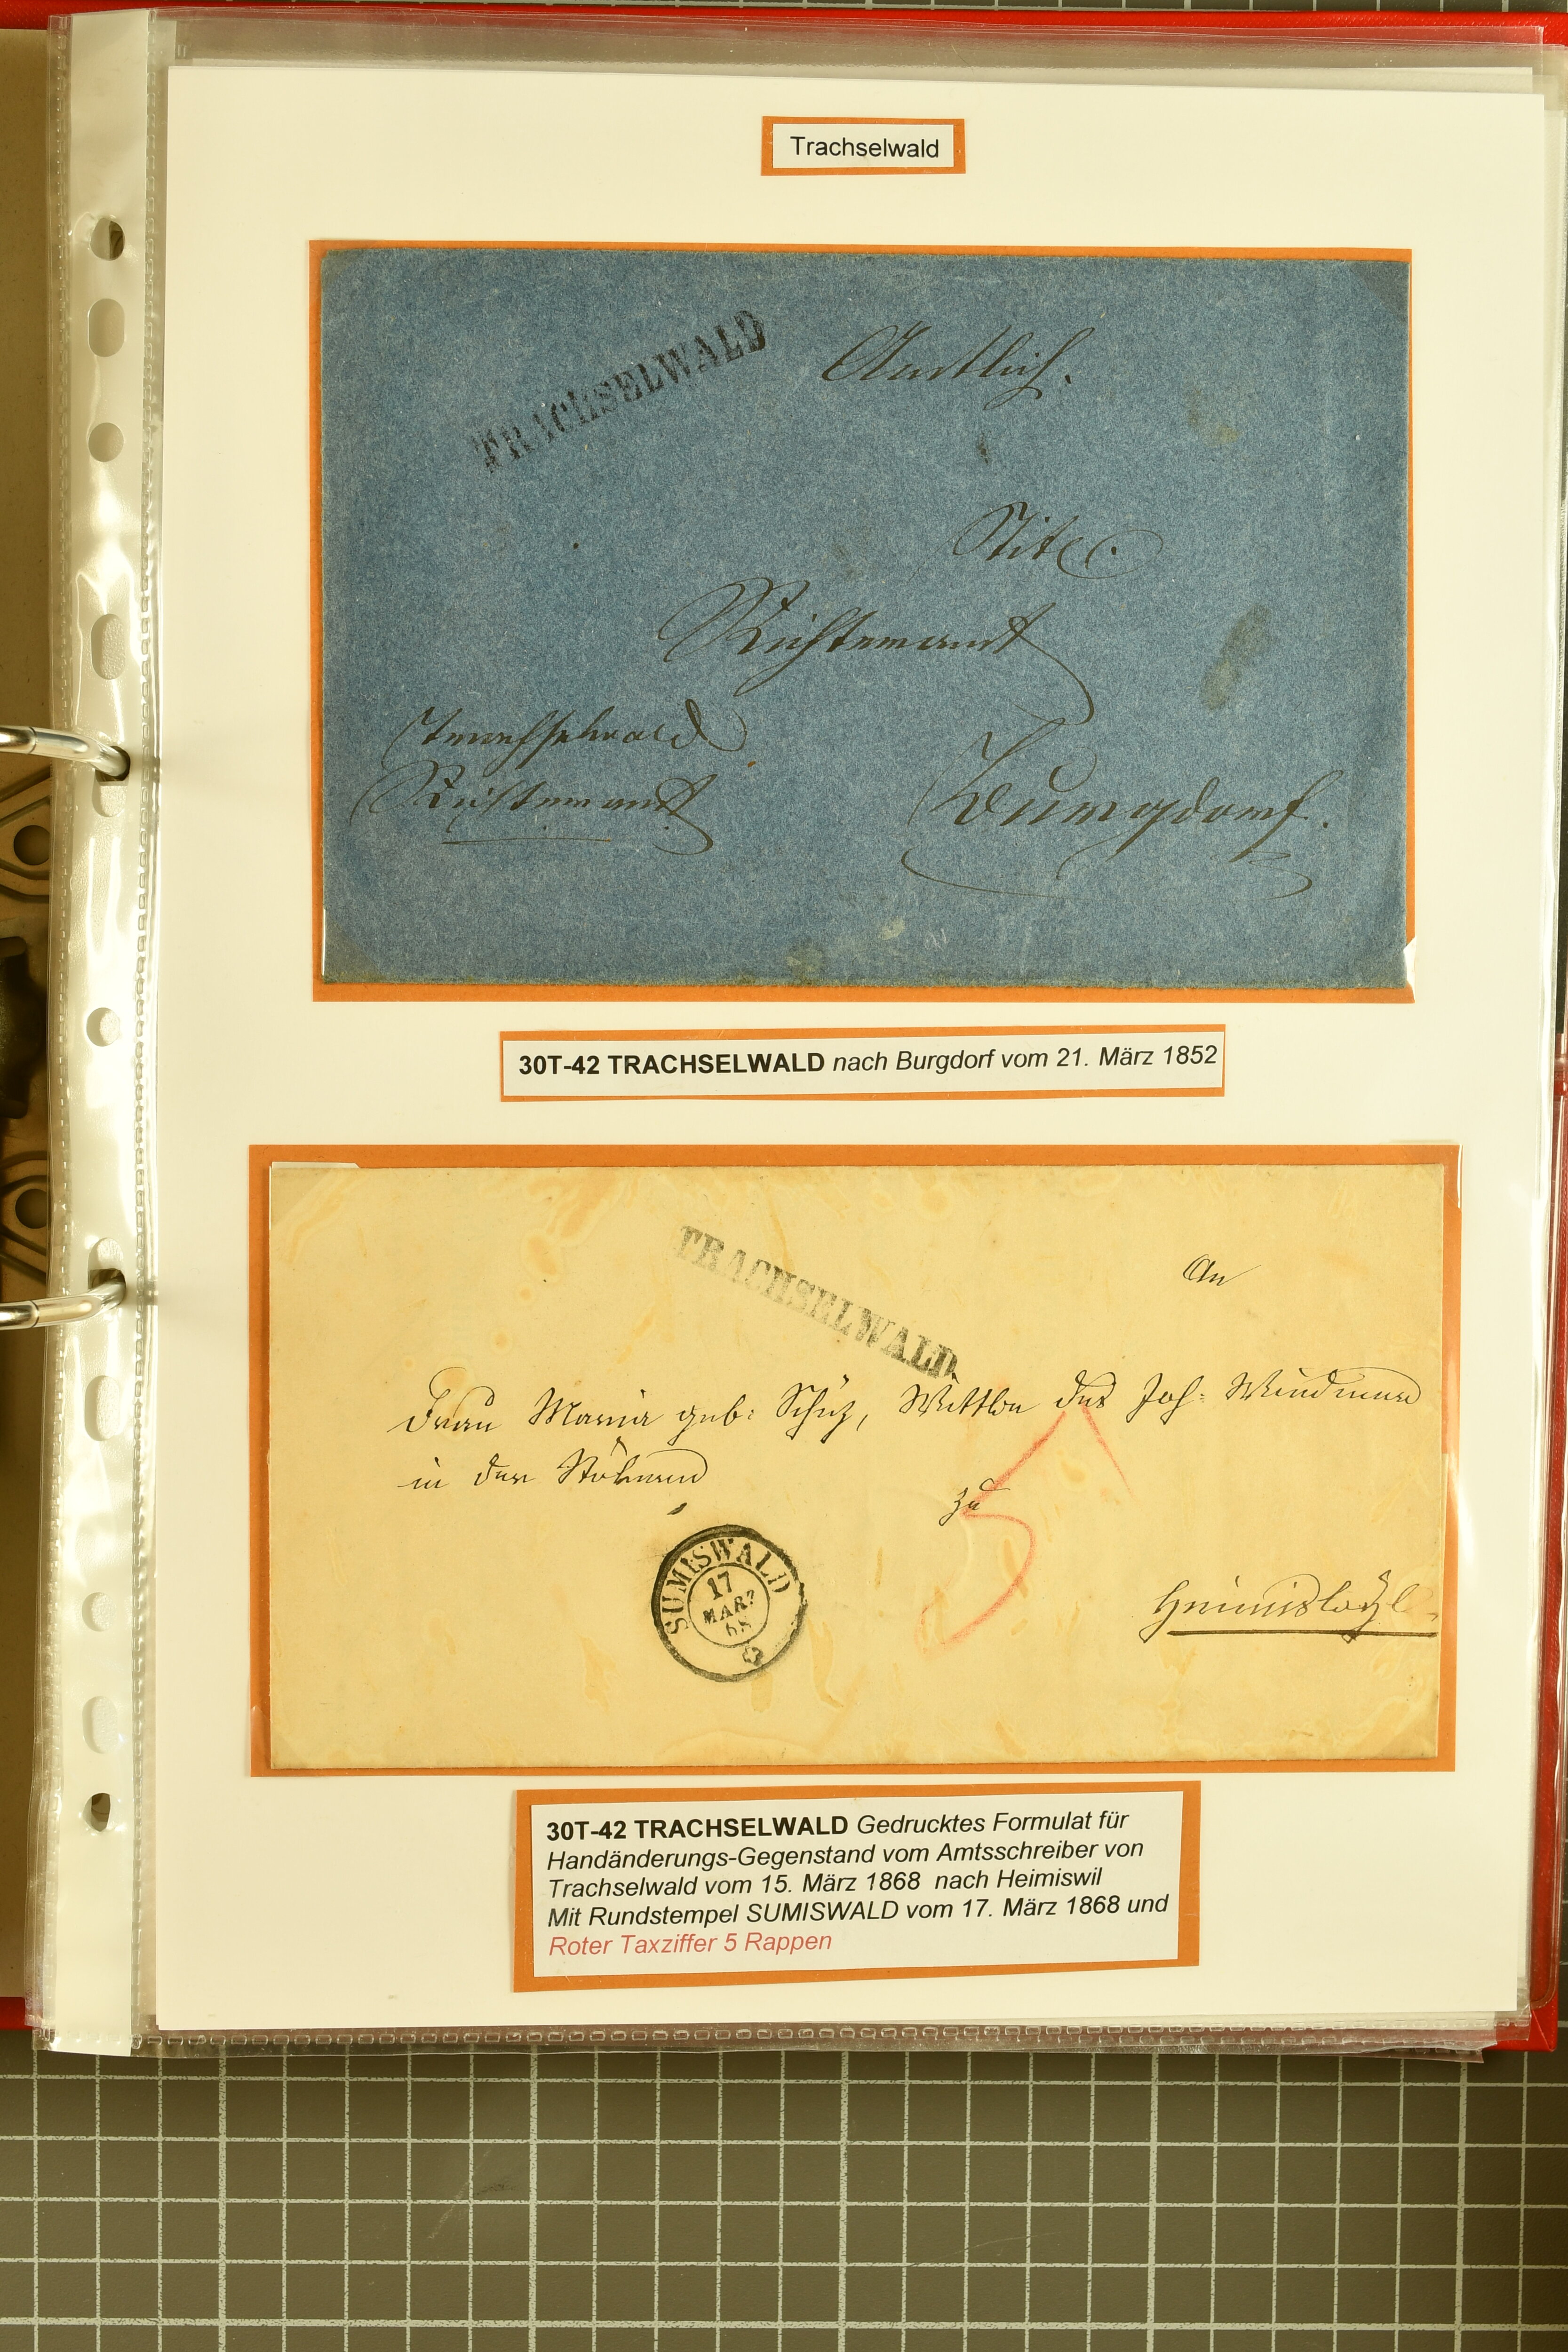 Trachselwald
TRACHSELWALD
Amtlich.
Richteramt
Trachselwald
Richteramt
Burgdorf.
30T-42 TRACHSELWALD nach Burgdorf vom 21. März 1852
TRACHSELWALD
An
Frau Maria geb: Schüz, Wittwe des Joh:
in der
zu
Heimiswyl.
SUMISWALD
17
MÄRZ
68
5
30T-42 TRACHSELWALD Gedrucktes Formulat für
Handänderungs-Gegenstand vom Amtsschreiber von
Trachselwald vom 15. März 1868 nach Heimiswil
Mit Rundstempel SUMISWALD vom 17. März 1868 und
Roter Taxziffer 5 Rappen